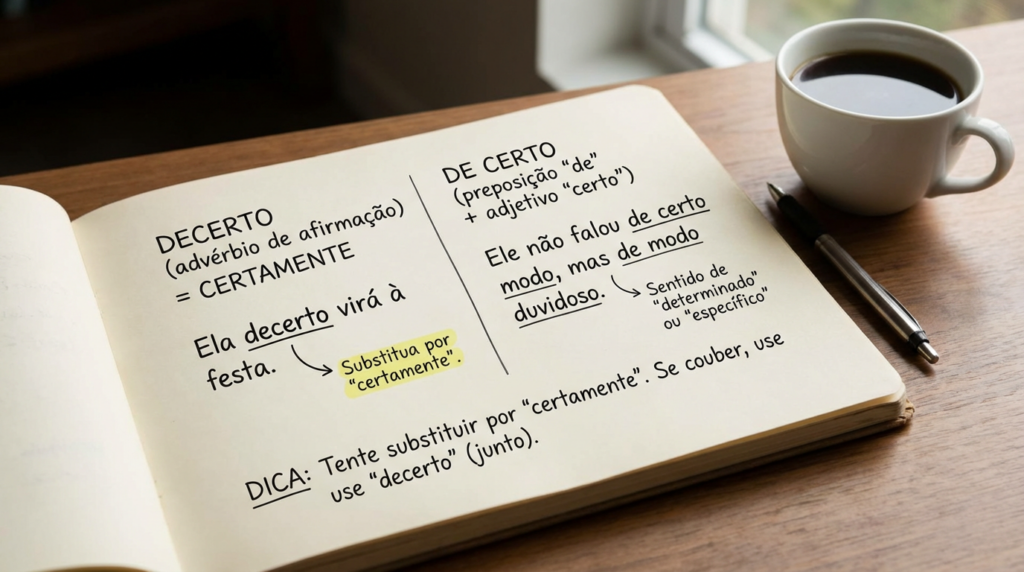 DECERTO
(advérbio de afirmação)
= CERTAMENTE
Ela decerto virá à
festa.
Substitua por
"certamente".
DE CERTO
(preposição "de"
+ adjetivo "certo")
Ele não falou de certo
modo, mas de modo
duvidoso.
Sentido de
"determinado"
ou "específico"
DICA: Tente substituir por "certamente". Se couber, use
use "decerto" (junto).